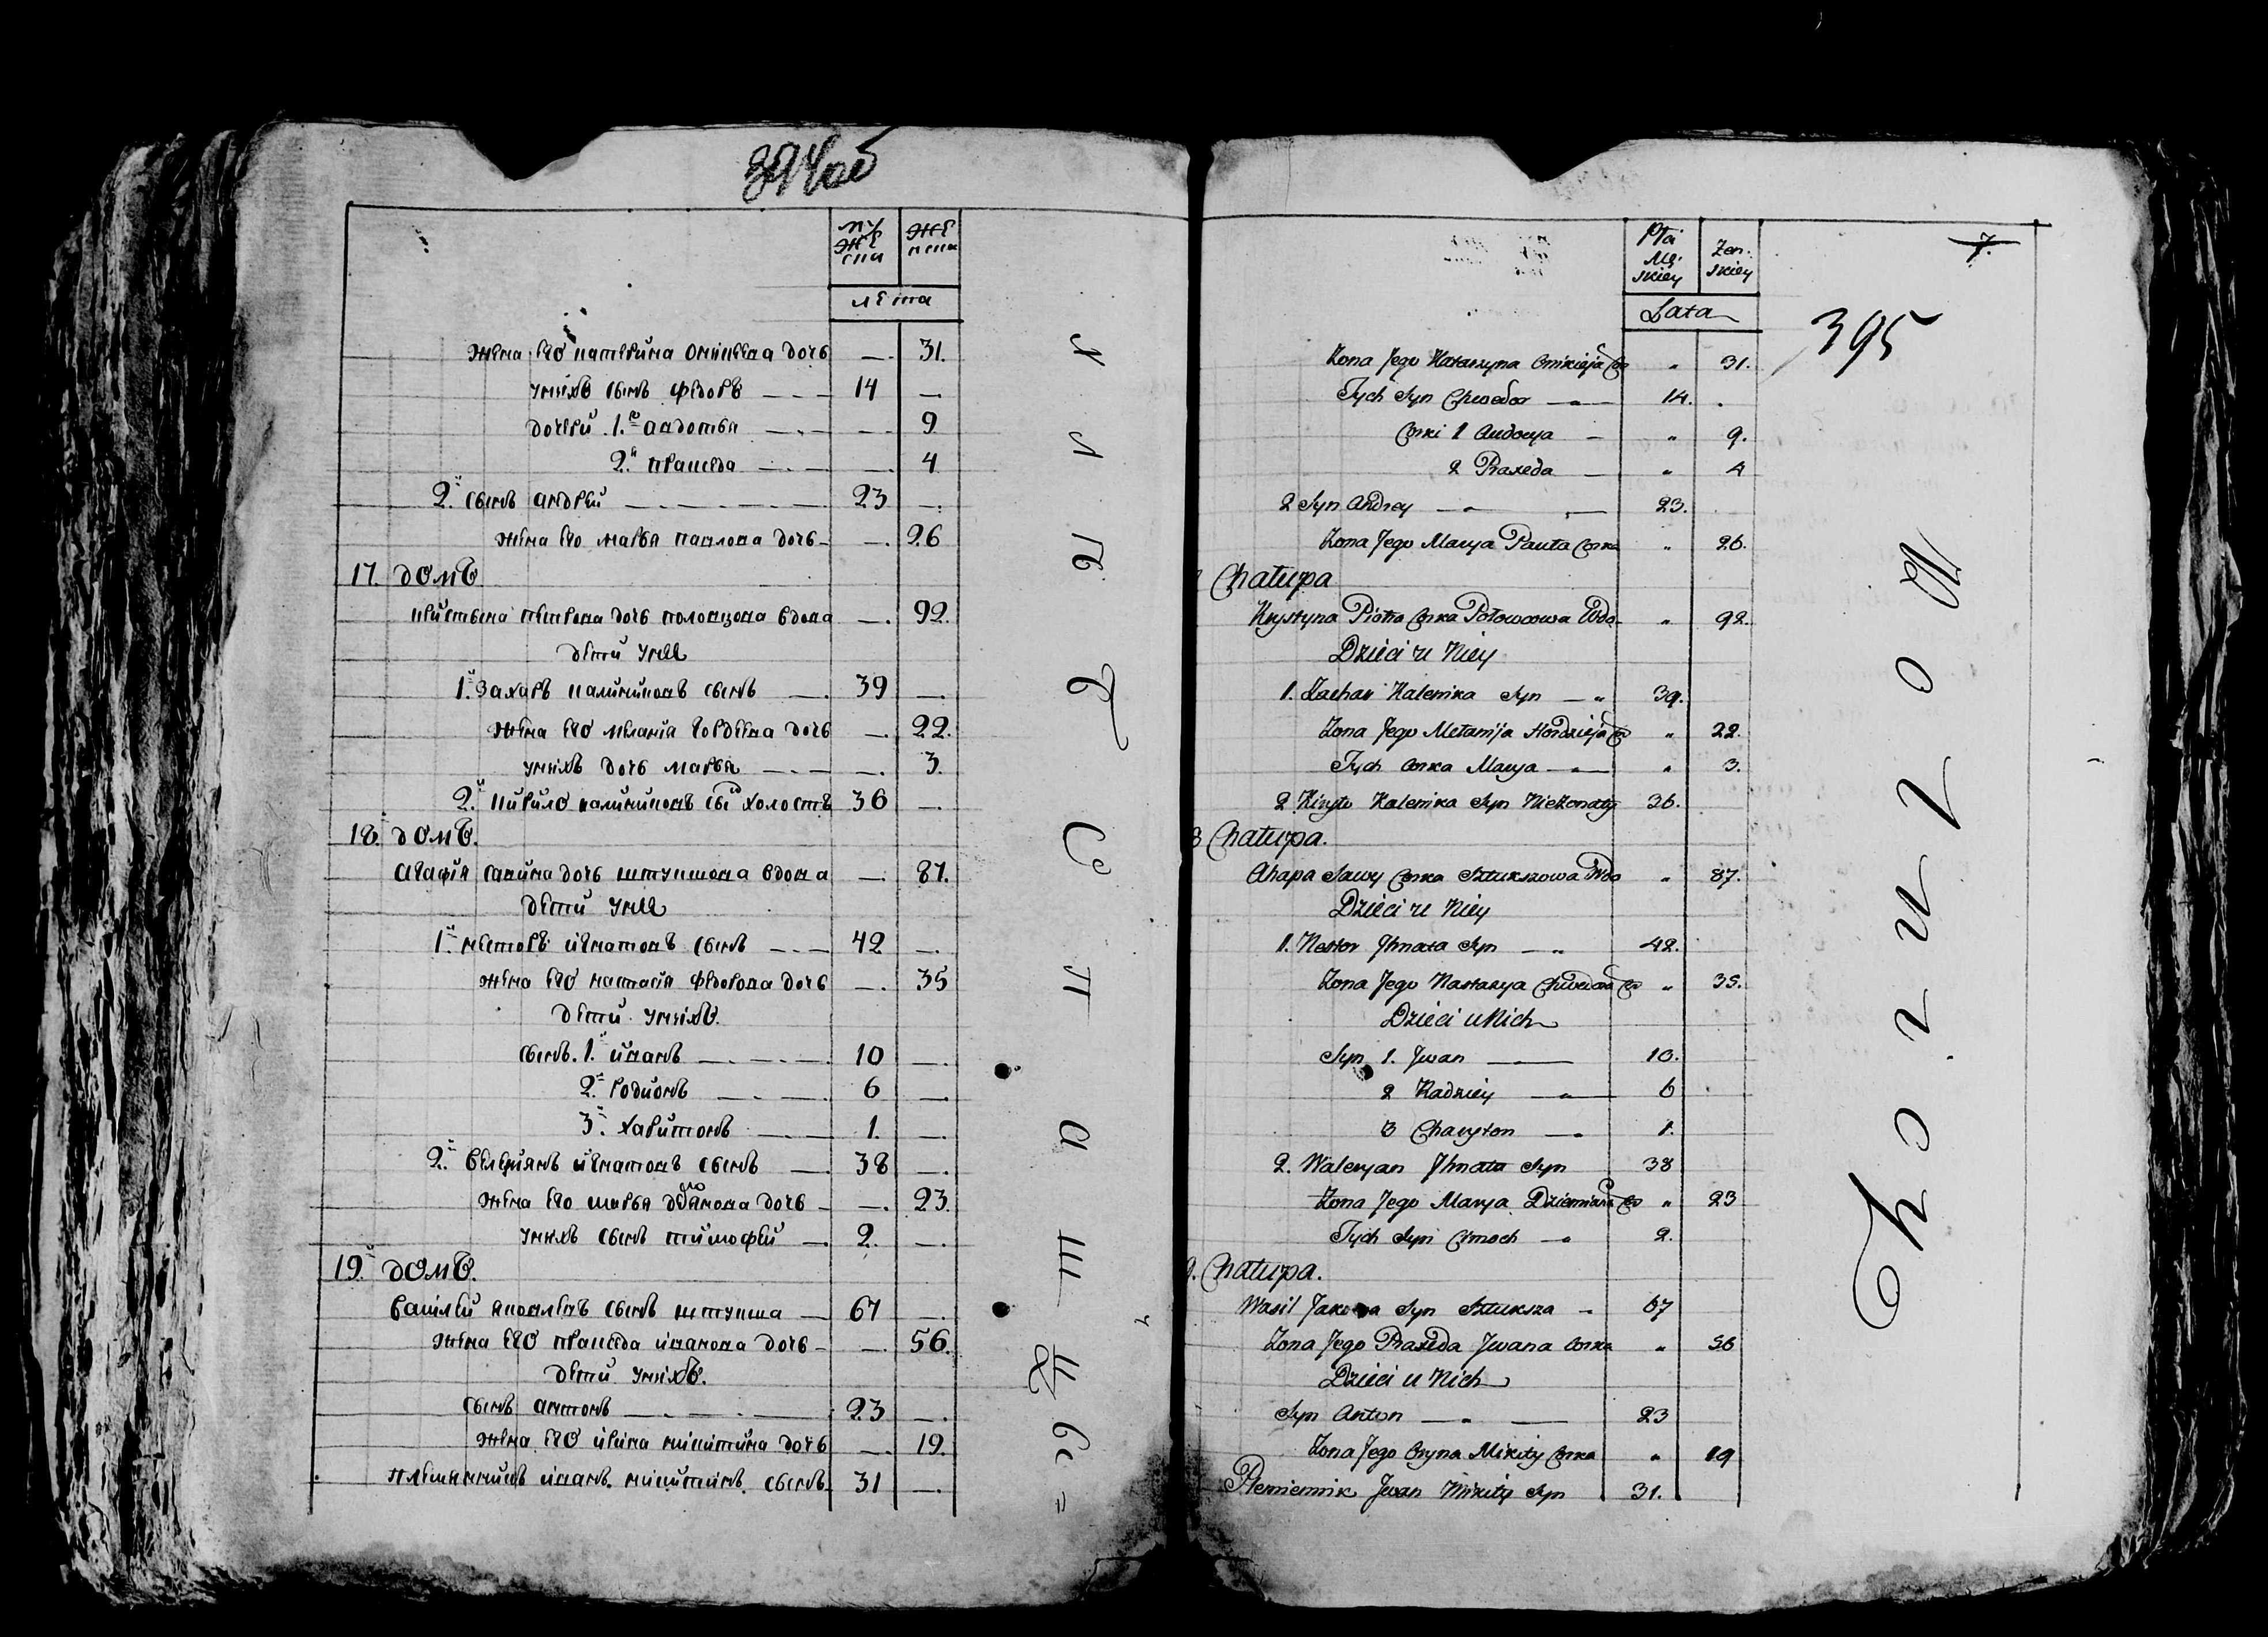 394об
муже
ски
жен
ска
лета
жена его катерина оникеева дочь — 31.
уних сынъ федоръ 14 —
дочери 1.я авдотья — 9
2.я праседа — 4
2.й сынъ андрей 23 —
жена его марья павлова дочь — 26
17. домъ
кристина петрова дочь половцова вдова — 92.
дети унее
1.й захаръ калиниковъ сынъ 39 —
жена его мелания гордеева дочь — 22.
унихъ дочь марья — 3.
2.й кирило калиниковъ сынъ холостъ 36 —
18. домъ.
агафия савина дочь штукшова вдова — 87.
дети унее
1.й несторъ игнатовъ сынъ 42 —
жена его настасия федорова дочь — 35
дети унихъ.
сынъ. 1.й иванъ 10 —
2.й родионъ 6 —
3.й харитонъ 1. —
2.й велериянъ игнатовъ сынъ 38 —
жена его марья домянова дочь — 23.
унихъ сынъ тимофей 2. —
19.й домъ.
василей яковлевъ сынъ штукша 67 —
жена его праседа иванова дочь — 56.
дети унихъ.
сынъ антонъ 23 —
жена его ирина никитина дочь — 19.
племянникъ иванъ никитинъ сынъ 31 —
7.
395
Płci
Mę.
skiey
Żen.
skiey
Lata
Żona Jego Katarzyna Onikieja Co " 31.
Tych Syn Chwedor 14.
Corki 1 Audocya " 9.
2 Praxeda " 4
2 Syn Andrey 23.
Żona Jego Marya Pauła Corka " 26.
Chałupa
Krystyna Piotra Corka Połowcowa Wdo. " 92.
Dzieci u Niey
1. Zachar Kalenika Syn " 39.
Żona Jego Mełanija Hordzieja Co " 22.
Tych Corka Marya " 3.
2 Kiryło Kalenika Syn Nieżonaty 36.
8 Chałupa.
Ahapa Sawy Corka Sztukszowa Wdo " 87.
Dzieci u Niey
1. Nestor Jhnata Syn " 42.
Żona Jego Nastazya Chwedora Co " 35.
Dzieci u Nich
Syn 1. Jwan 10.
2 Radziey 6
3 Charyton 1.
2. Waleryan Jhnata Syn 38
Żona Jego Marya Dziemiana Co " 23
Tych Syn Cimoch 2.
9. Chałupa.
Wasil Jakowa Syn Sztuksza 67
Żona Jego Praxeda Jwana Corka " 56
Dzieci u Nich
Syn Anton 23
Żona Jego Oryna Mikity Corka " 19
Plemiennik Jwan Mikity Syn 31.